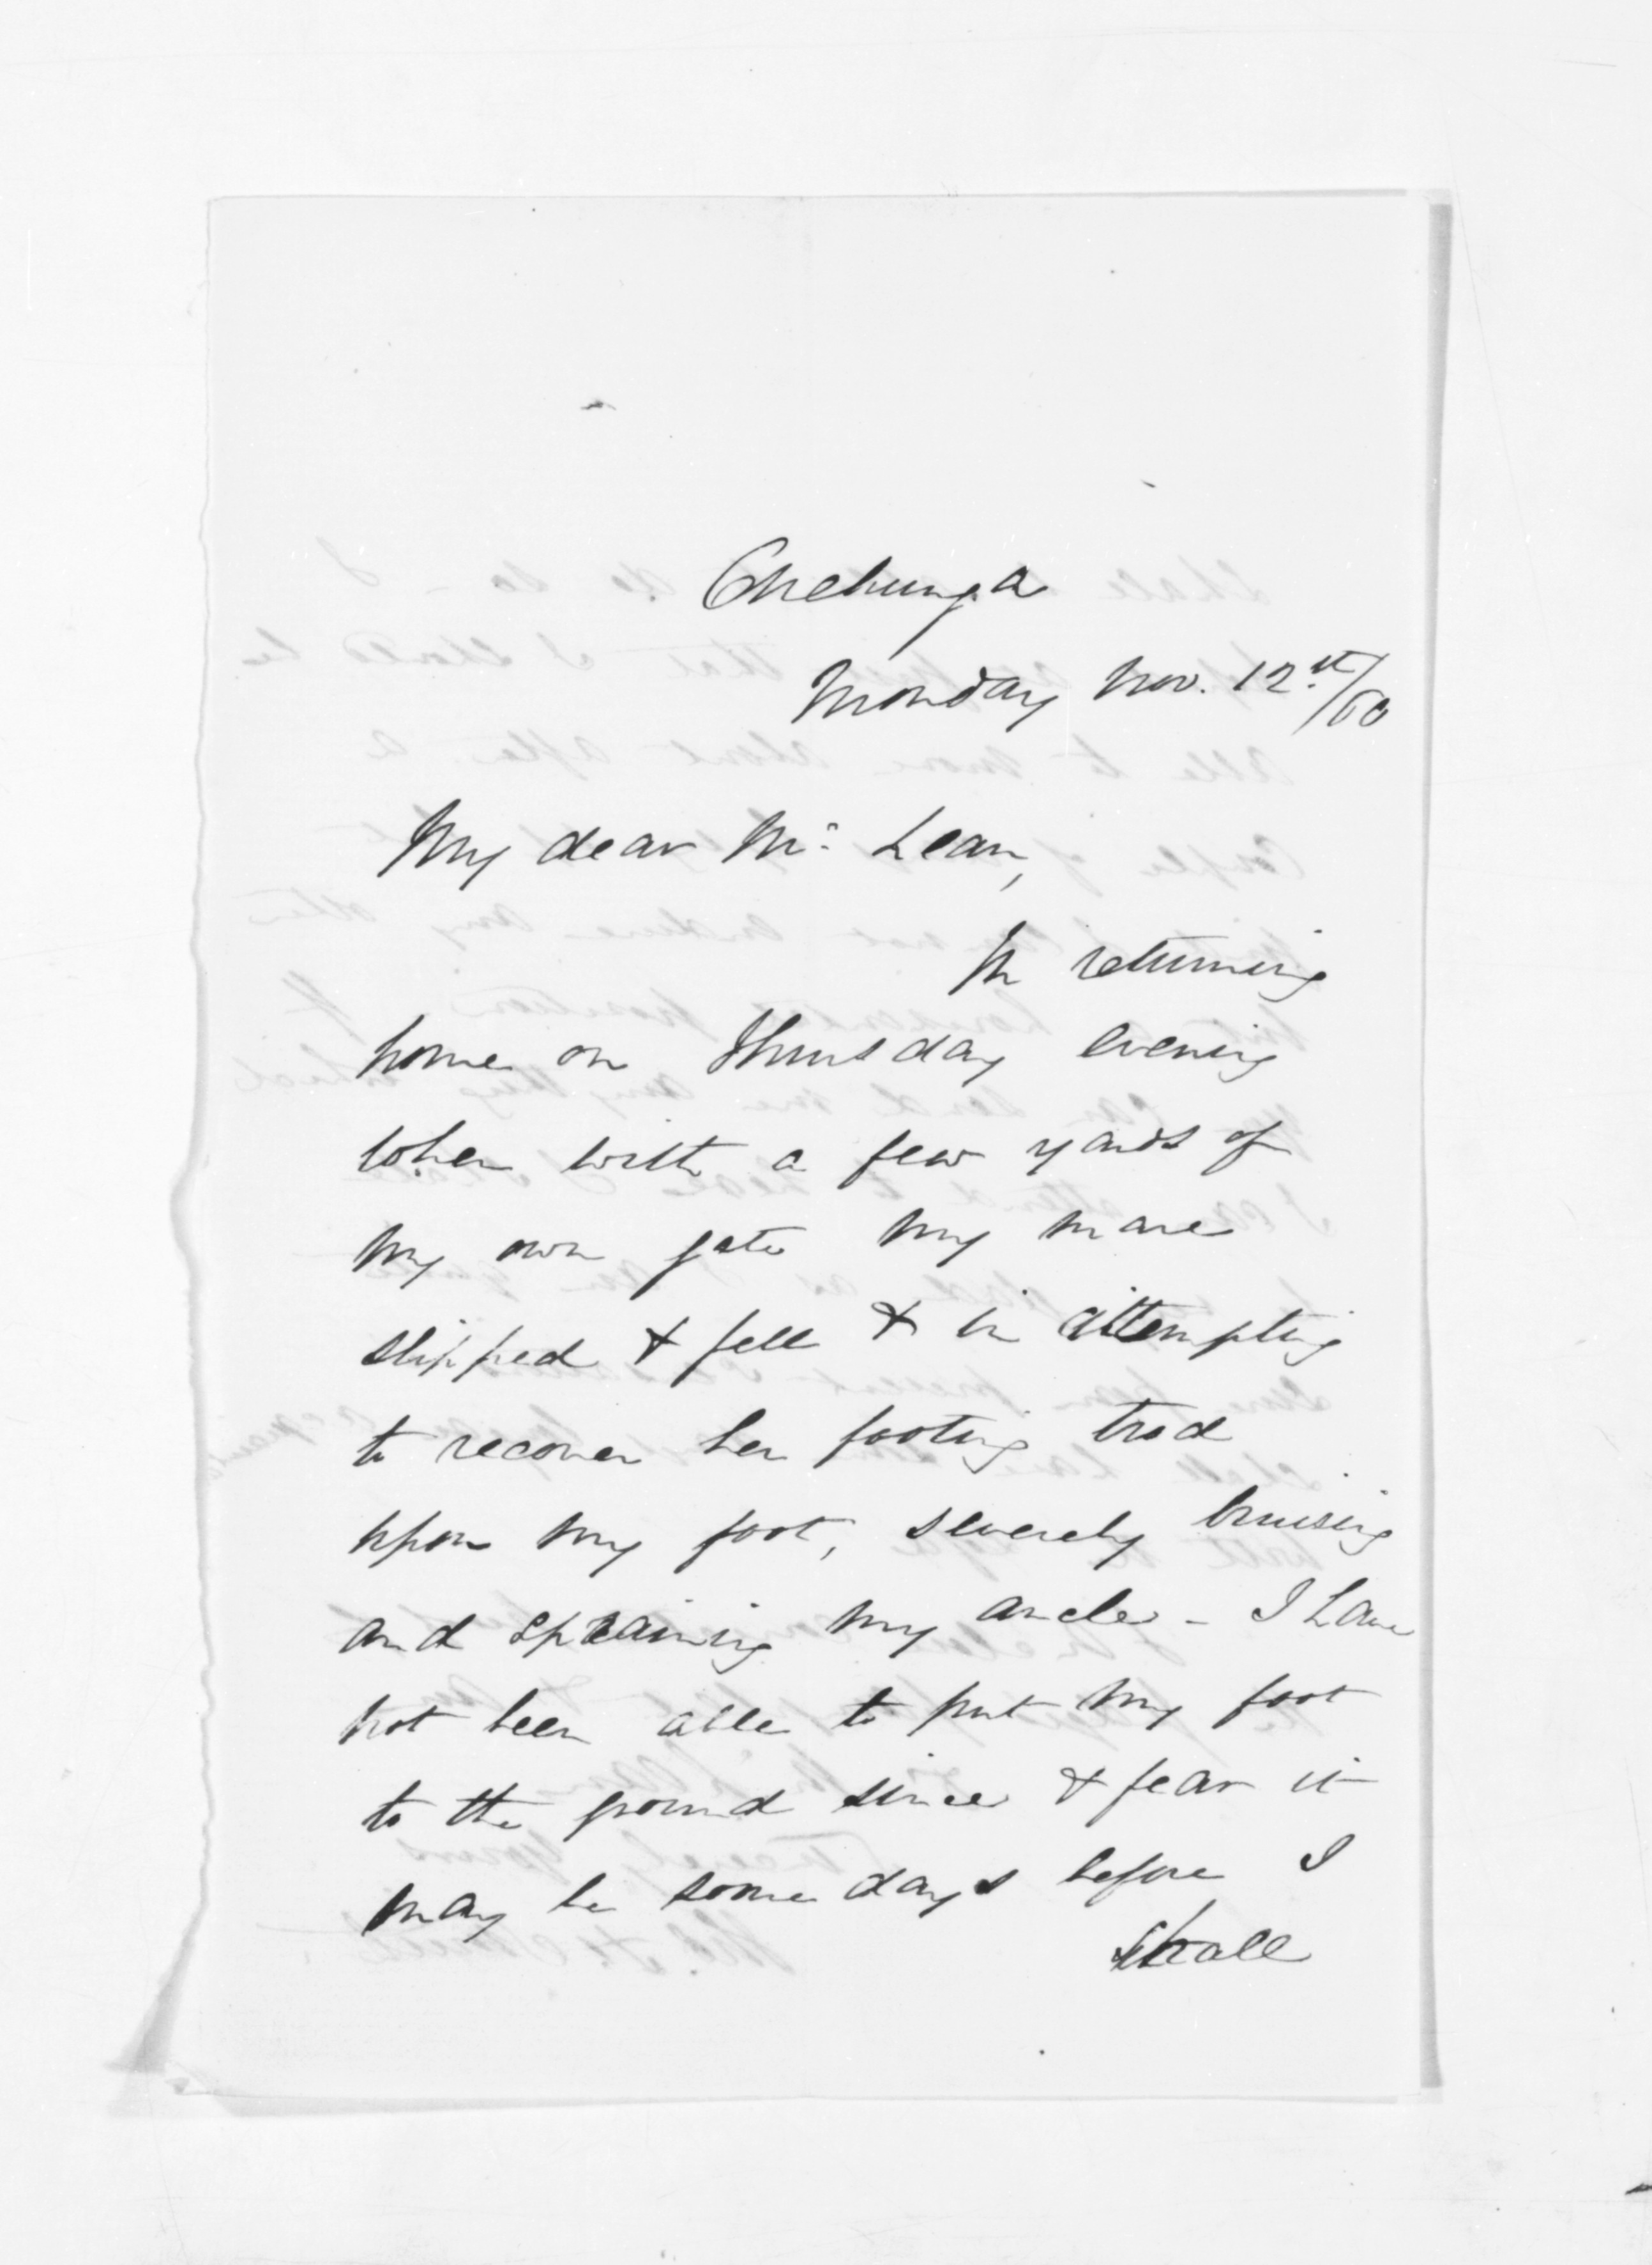 Onehunga
Monday Nov. 12th/60
My dear Mc Lean,
In returning
home on Thursday evening
when with a few yards of
my own gate my mare
slipped & fell & in attempting
to recover her footing trod
upon my foot, severely bruising
and spraining my ancle - I have
not been able to put my foot
to the ground since & fear it
may be some days before I
shall